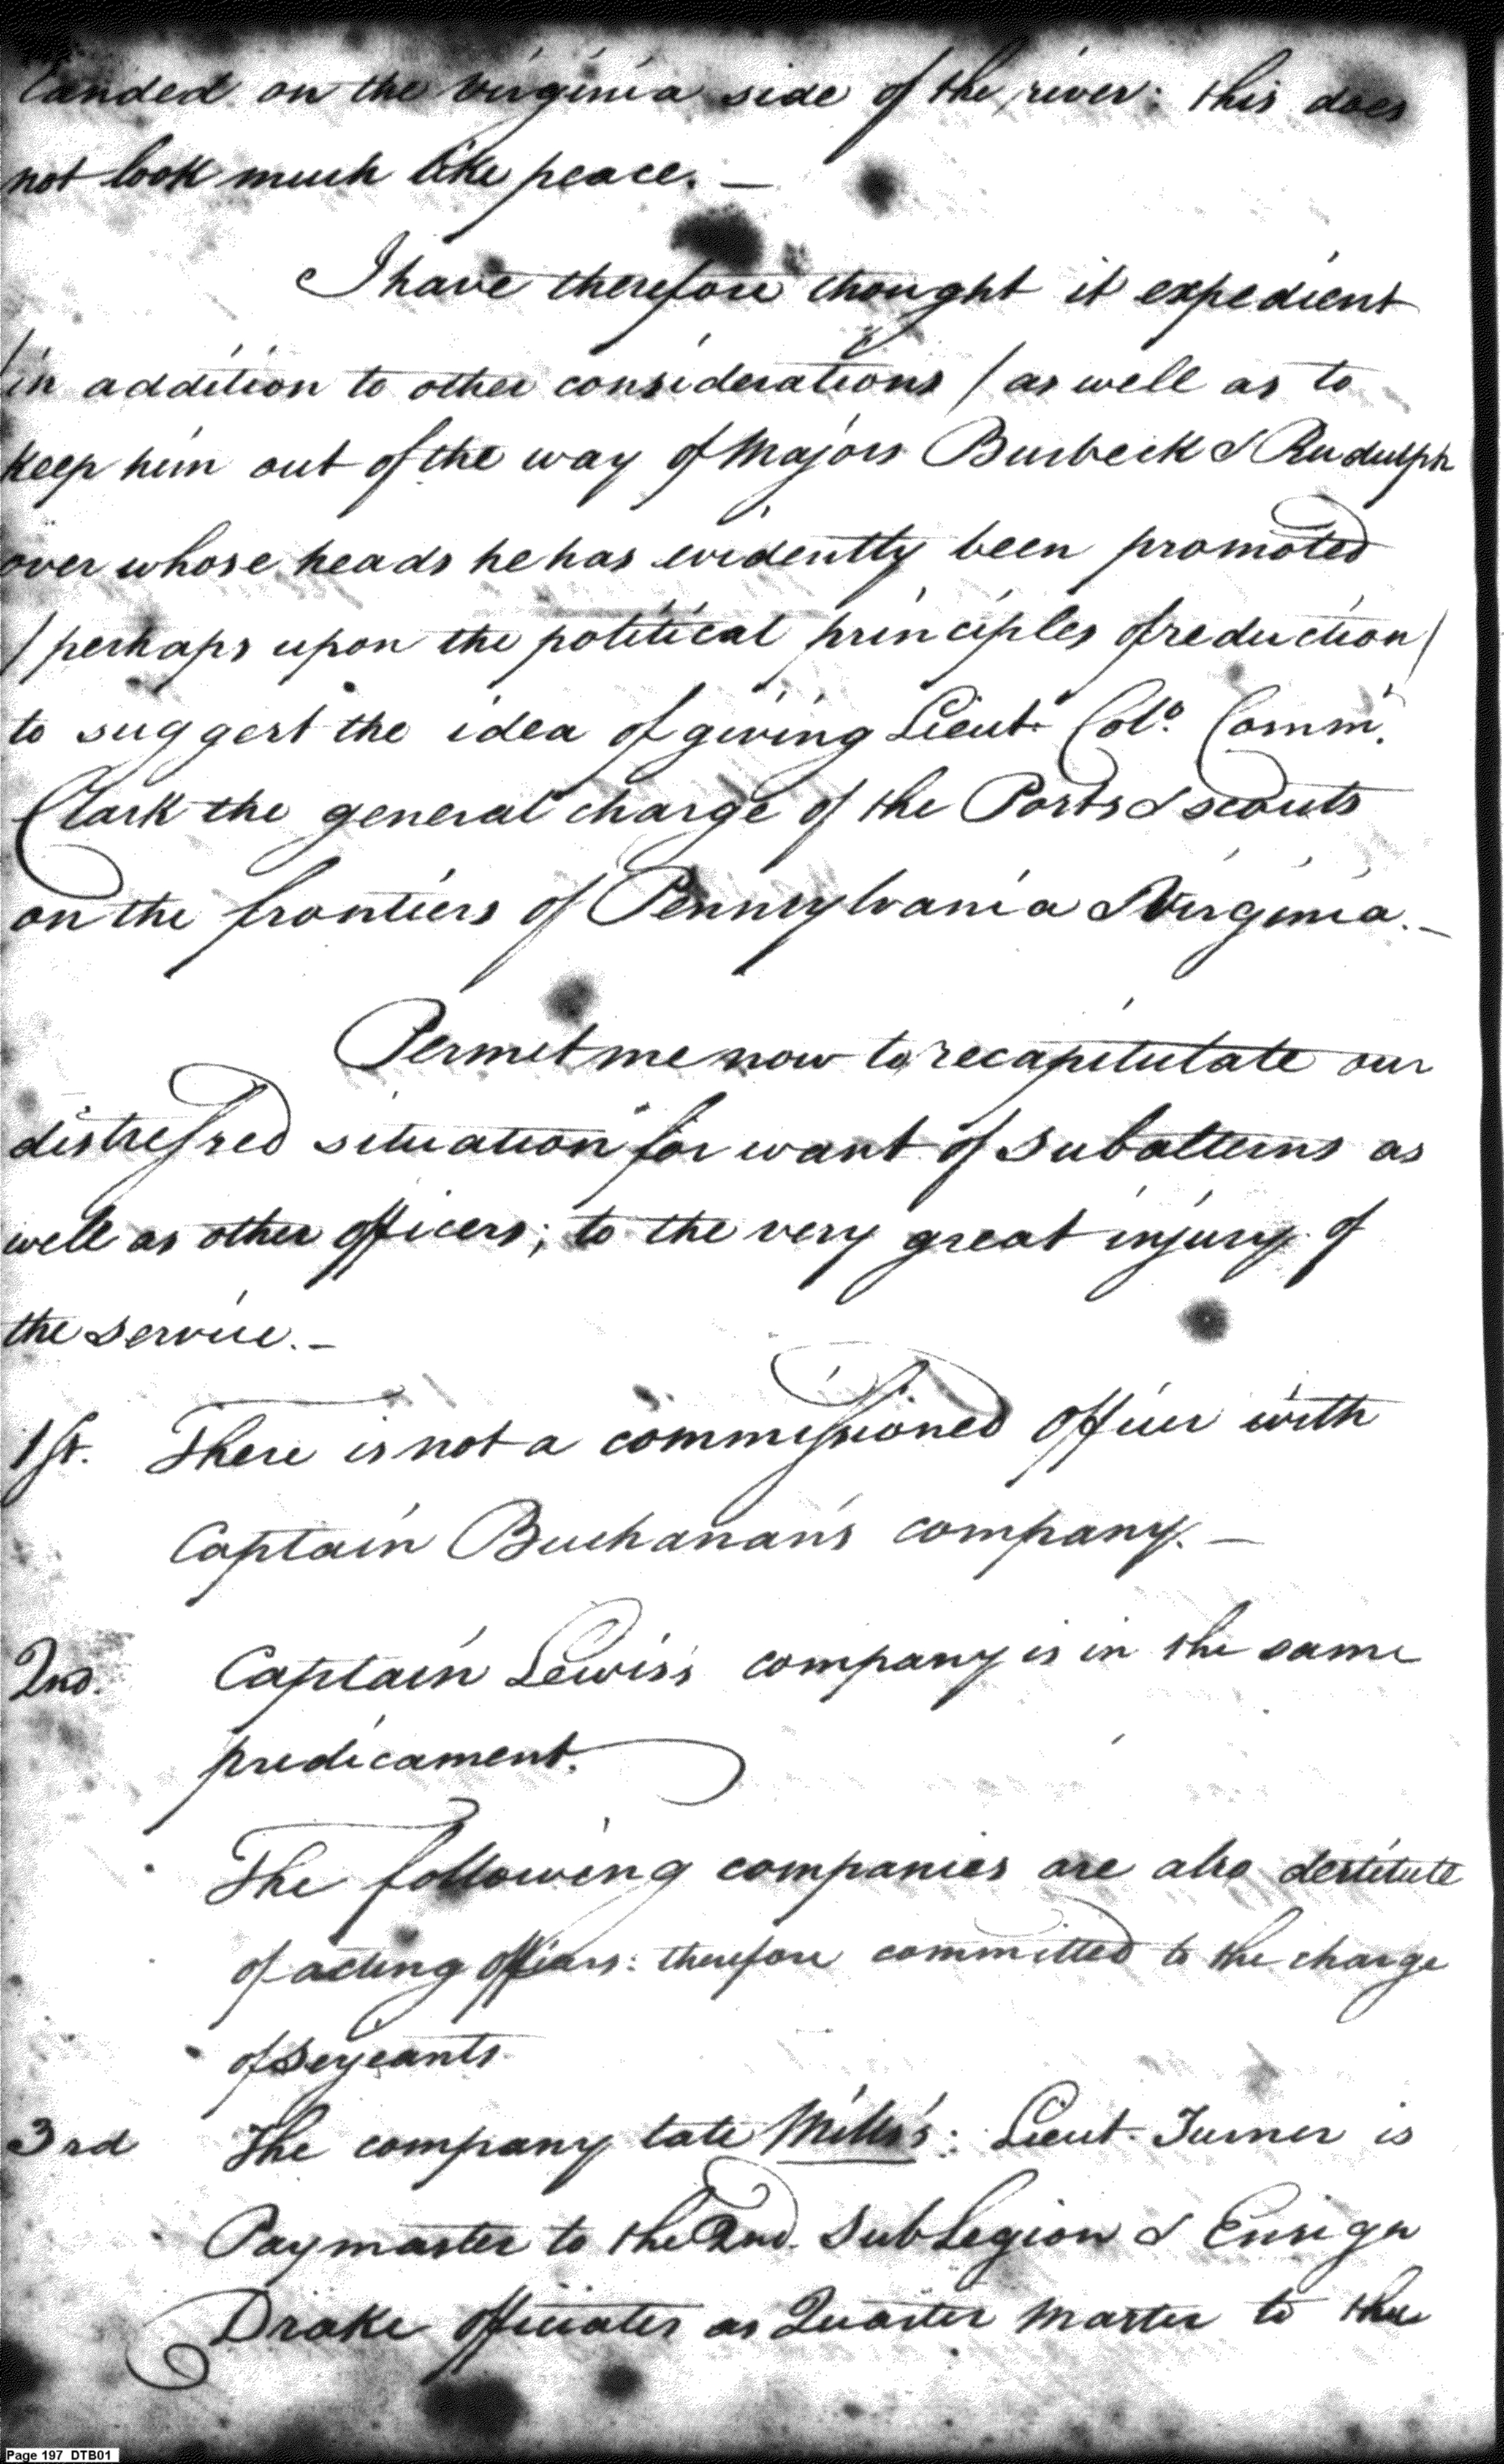 landed on the Virginia side of the river: this does
not look much like peace. —
I have therefore thought it expedient
/in addition to other considerations/ as well as to
keep him out of the way of Majors Burbeck & Rudulph
over whose heads he has evidently been promoted
/perhaps upon the political principles of reduction/
to suggest the idea of giving Lieut. Colo. Comm.
Clark the general charge of the Posts & scouts
on the frontiers of Pennsylvania & Virginia. —
Permit me now to recapitulate our
distressed situation for want of subalterns as
well as other officers; to the very great injury of
the service. —
1st. There is not a commissioned officer with
Captain Buchanan's company. —
2nd. Captain Lewis's company is in the same
predicament.
The following companies are also destitute
of acting officers: therefore committed to the charge
of serjeants
3rd The company late Mills's: Lieut. Turner is
Paymaster to the 2nd. Sub Legion & Ensign
Drake officiates as Quarter Master to the
Page 197 DTB01